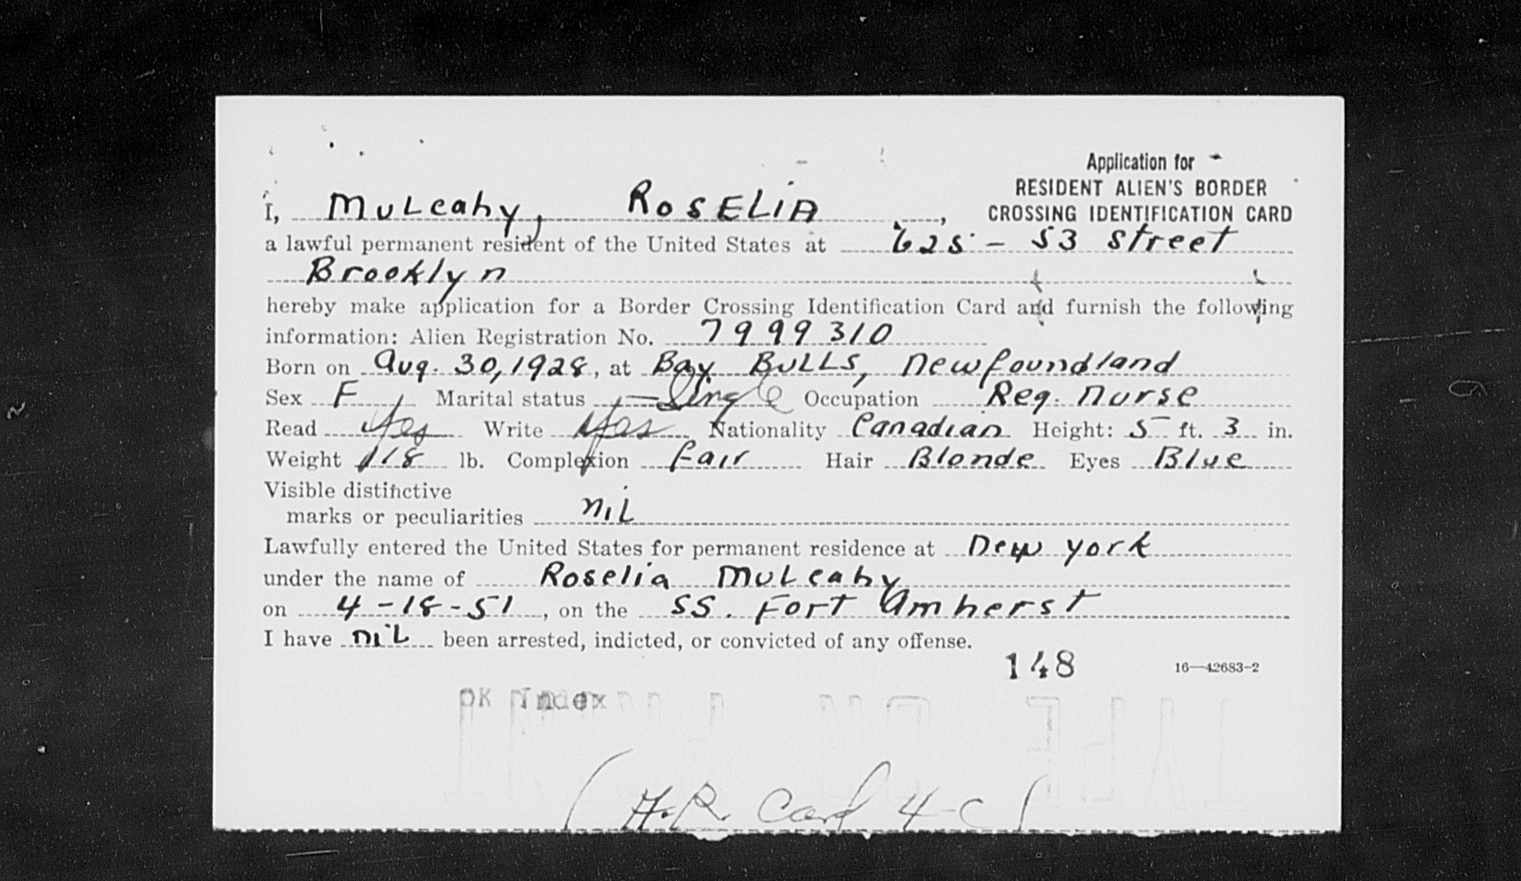 Application for
RESIDENT ALIEN'S BORDER
CROSSING IDENTIFICATION CARD
I, Mulcahy, Roselia ,
a lawful permanent resident of the United States at 625 - 53 Street
Brooklyn
hereby make application for a Border Crossing Identification Card and furnish the following
information: Alien Registration No. 7999310
Born on Aug. 30, 1928, at Bay Bulls, Newfoundland
Sex F Marital status Single Occupation Reg. Nurse
Read Yes Write Yes Nationality Canadian Height: 5 ft. 3 in.
Weight 118 lb. Complexion Fair Hair Blonde Eyes Blue
Visible distinctive
marks or peculiarities nil
Lawfully entered the United States for permanent residence at New York
under the name of Roselia Mulcahy
on 4-18-51, on the SS. Fort Amherst
I have nil been arrested, indicted, or convicted of any offense.
148 16—42683-2
OK Index
(A.R. Card 4-C)